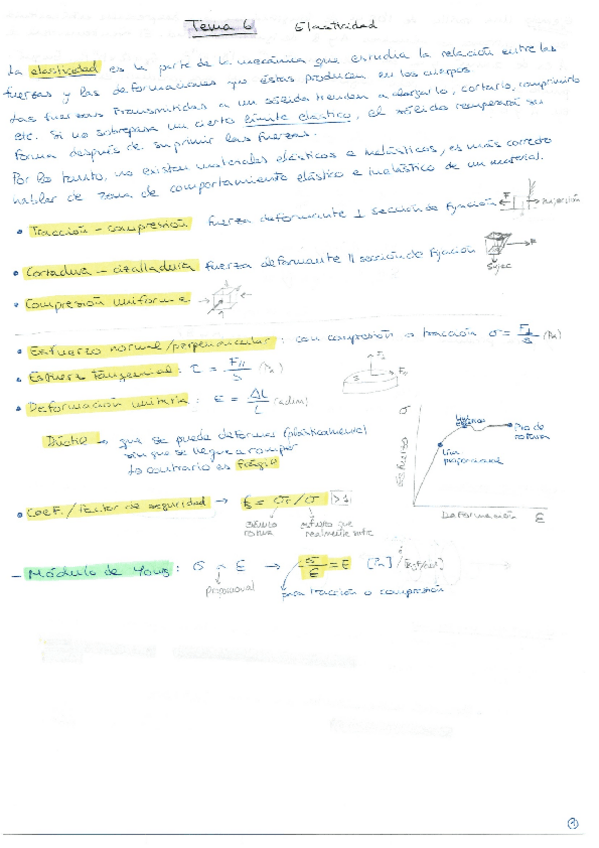 Tema 6 Elasticidad
La elasticidad es la parte de la mecánica que estudia la relación entre las
fuerzas y las deformaciones que éstas producen en los cuerpos
Las fuerzas transmitidas a un sólido tienden a alargarlo, cortarlo, comprimirlo
etc. Si no sobrepasa un cierto límite elástico, el sólido recuperará su
forma después de suprimir las fuerzas.
Por lo tanto, no existen materiales elásticos e inelásticos, es más correcto
hablar de zona de comportamiento elástico e inelástico de un material.
• Tracción - compresión fuerza deformante ⊥ sección de fijación F sujeción
• Cortadura - cizalladura fuerza deformante || sección de fijación
Sujec
• Compresión uniforme
• Esfuerzo normal/perpendicular: con compresión o tracción σ = F⊥/S (Pa)
• Esfuerzo tangencial: τ = F//S (Pa)
• Deformación unitaria: ε = ΔL/L (adim)
S F//
Dúctil → que se puede deformar (plásticamente)
sin que se llegue a romper
Lo contrario es frágil
σ
Límite elástico
Pto de rotura
Lim proporcional
Esfuerzo
Deformación ε
• Coef./Factor de seguridad → = σr/σ >1
esfuerzo rotura
esfuerzo que realmente
– Módulo de Young: σ ~ ε → σ/ε = E [Pa]
proporcional
para tracción o compresión